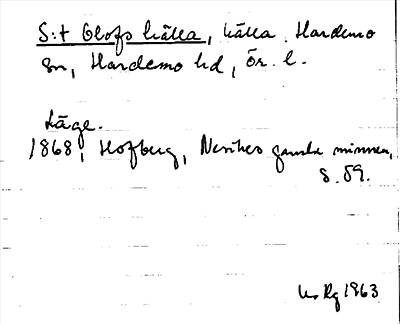 S:t Olofs källa, källa, Hardemo
sn, Hardemo hd, Ör. l.
Läge.
1868, Hofberg, Nerikes gamla minnen,
s. 59.
Rg 1963